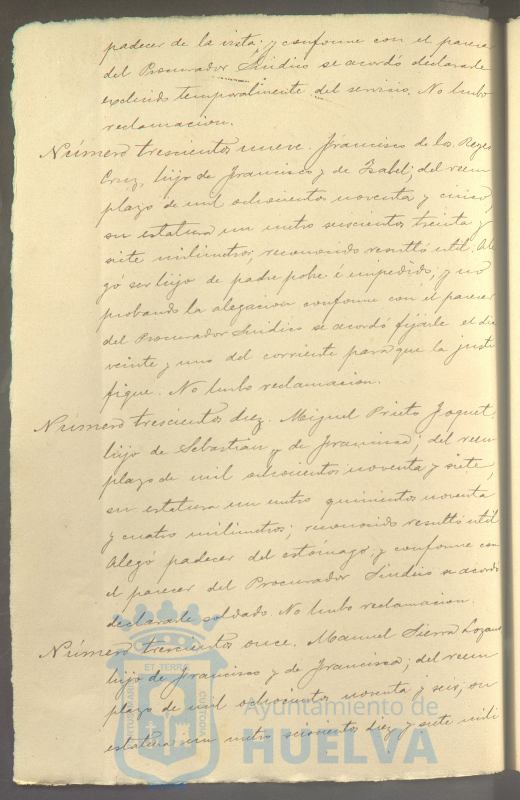 padecer de la vista; y conforme con el parecer
del Procurador Sindico se acordó declararle
excluido temporalmente del servicio. No hubo
reclamacion.
Número trescientos nueve. Francisco de los Reyes
Cruz, hijo de Francisco y de Isabel; del reem
plazo de mil ochocientos noventa y cinco;
su estatura un metro seiscientos treinta y
siete milimetros; reconocido resultó util. Ale
gó ser hijo de padre pobre é impedido; y no
probando la alegacion conforme con el parecer
del Procurador Sindico se acordó fijarle el dia
veinte y uno del corriente para que la justi
fique. No hubo reclamacion.
Número trescientos diez. Miguel Prieto
hijo de Sebastian y de Francisca; del reem
plazo de mil ochocientos noventa y siete;
su estatura un metro quinientos noventa
y cuatro milimetros; reconocido resultó util
Alegó padecer del estómago; y conforme con
el parecer del Procurador Sindico se acordó
declararle soldado. No hubo reclamacion.
Número trescientos once. Manuel Sierra Lozano
hijo de Francisco y de Francisca; del reem
plazo de mil ochocientos noventa y seis; su
estatura un metro seiscientos diez y siete mili
ET TERRÆ
CUSTODIA
Ayuntamiento de
HUELVA